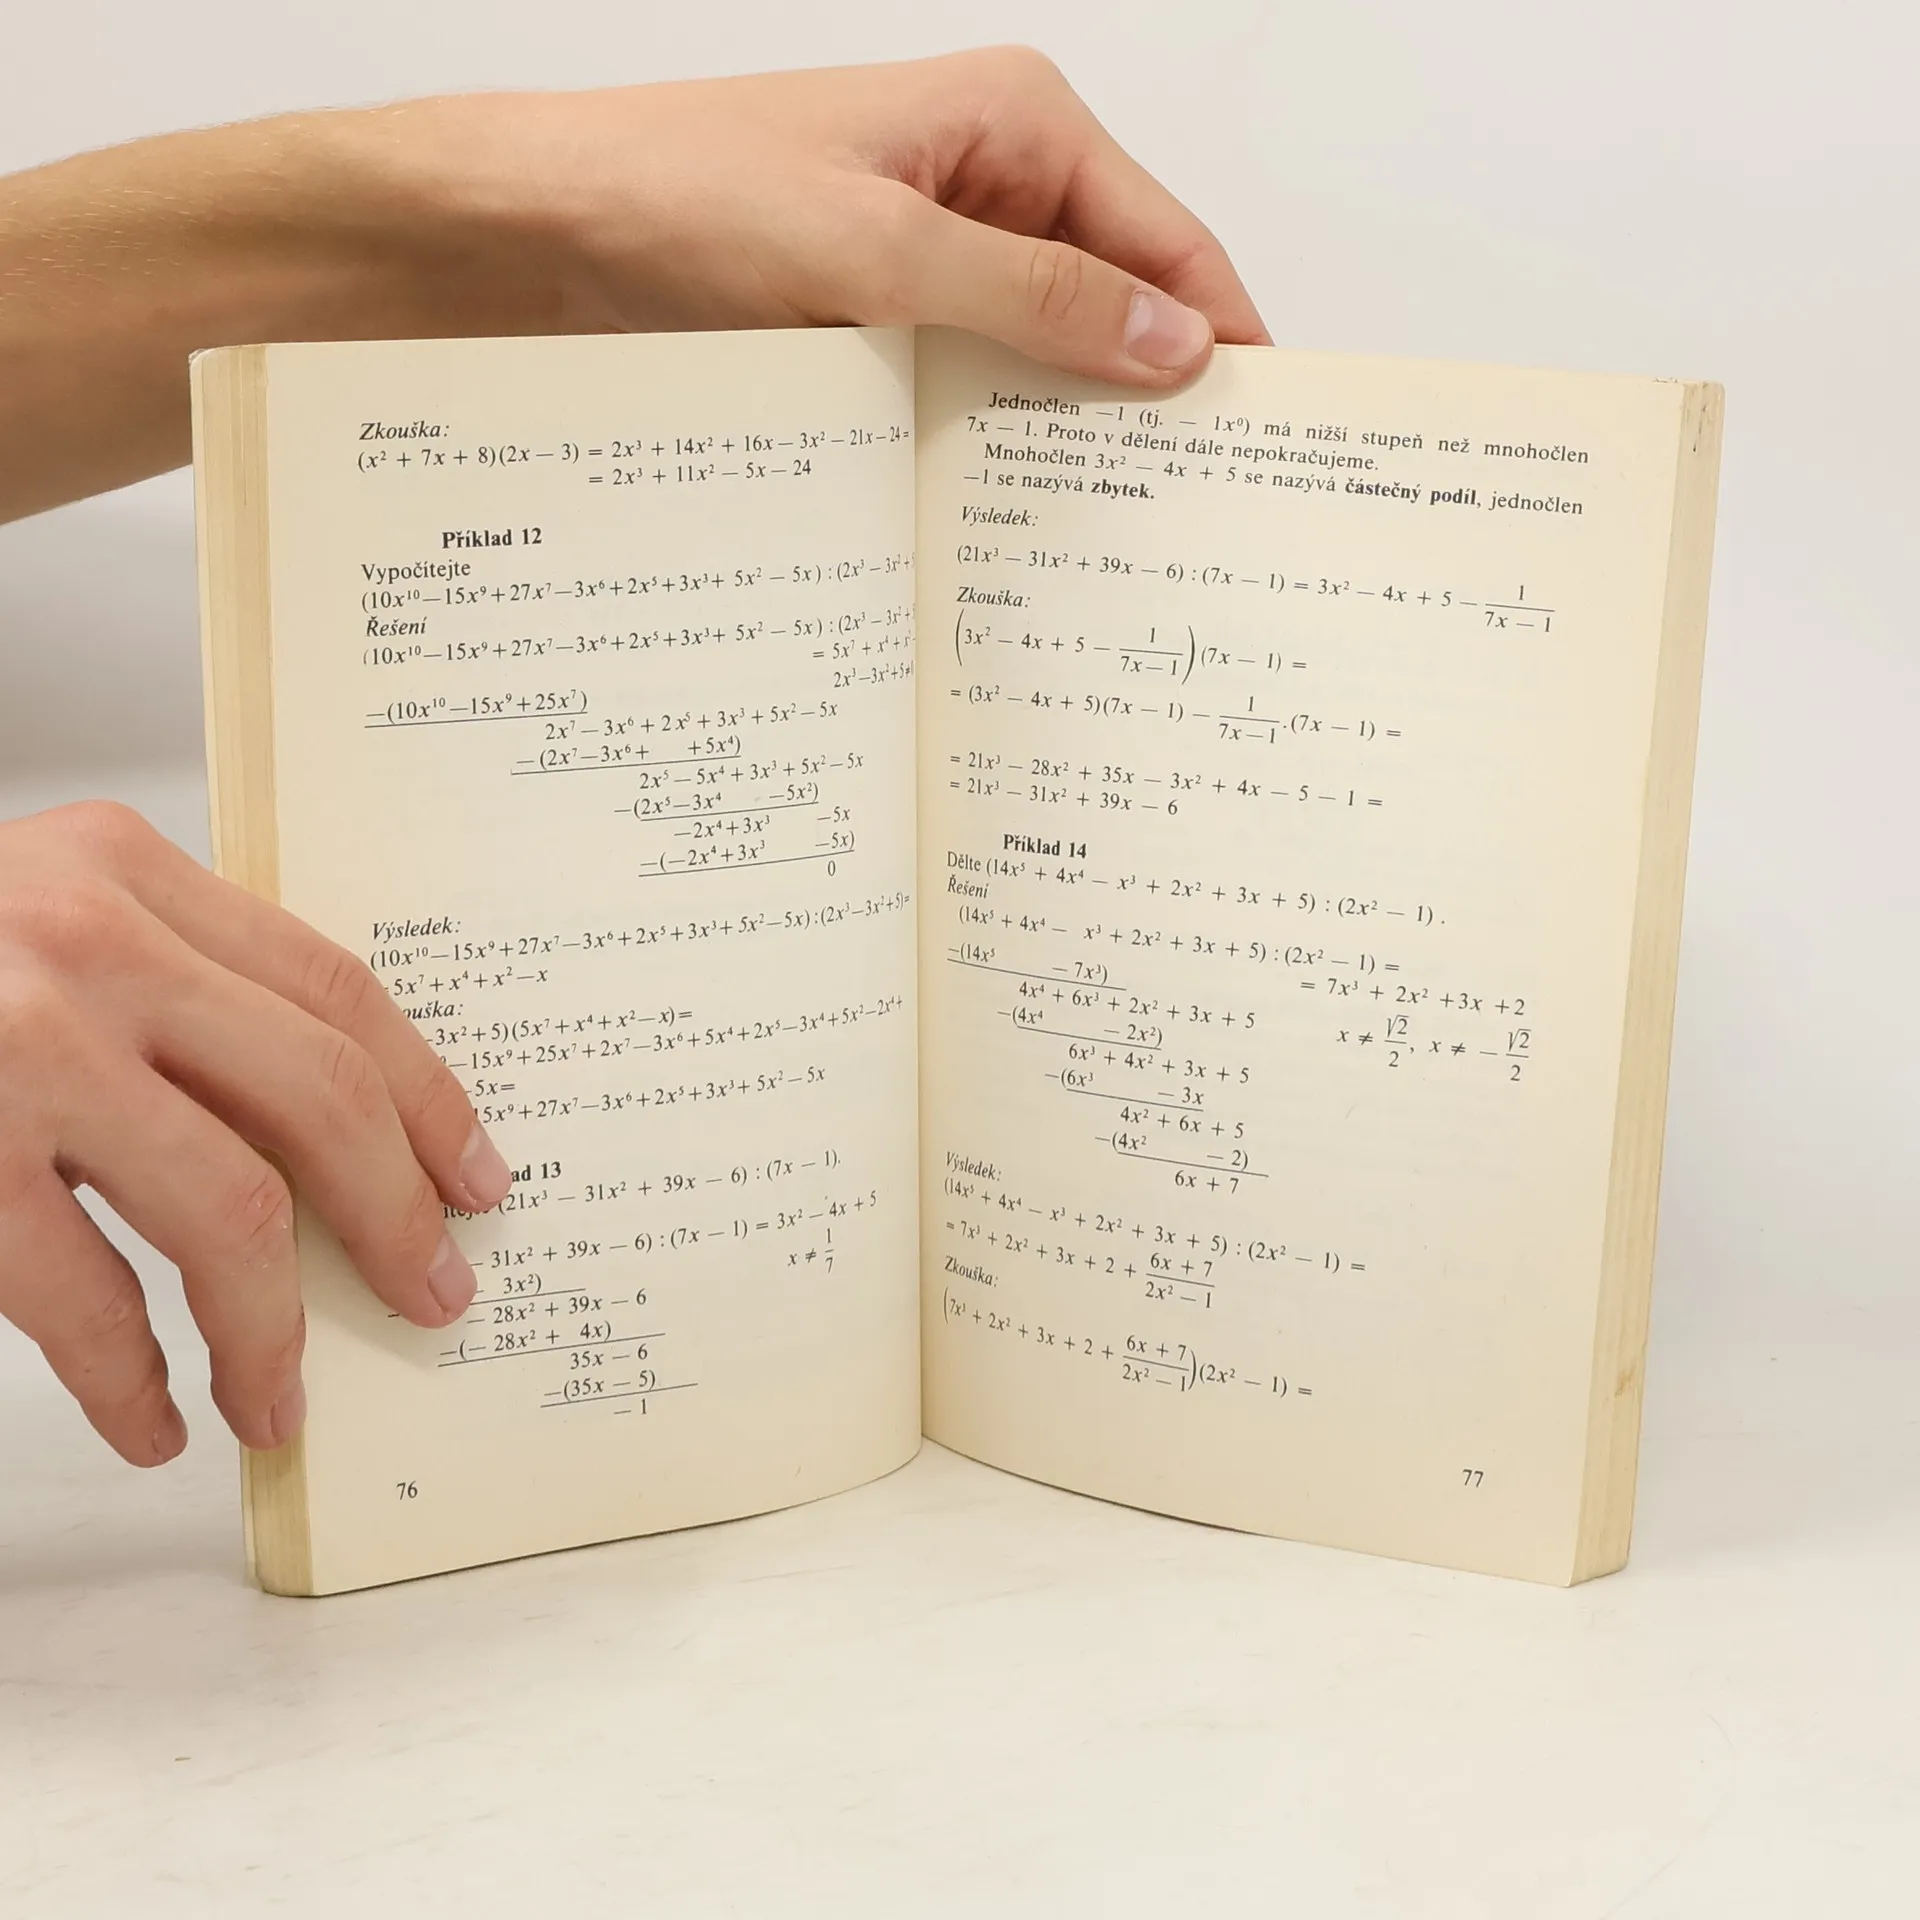 Zkouška:
(x² + 7x + 8)(2x — 3) = 2x³ + 14x² + 16x — 3x² — 21x — 24 =
= 2x³ + 11x² — 5x — 24
Příklad 12
Vypočítejte
(10x¹⁰ — 15x⁹ + 27x⁷ — 3x⁶ + 2x⁵ + 3x³ + 5x² — 5x) : (2x³ — 3x² +
Řešení
(10x¹⁰ — 15x⁹ + 27x⁷ — 3x⁶ + 2x⁵ + 3x³ + 5x² — 5x) : (2x³ — 3x² +
= 5x⁷ + x⁴ + x²
2x³ — 3x² + 5 ≠
—(10x¹⁰ — 15x⁹ + 25x⁷)
2x⁷ — 3x⁶ + 2x⁵ + 3x³ + 5x² — 5x
—(2x⁷ — 3x⁶ + + 5x⁴)
2x⁵ — 5x⁴ + 3x³ + 5x² — 5x
—(2x⁵ — 3x⁴ — 5x²)
—2x⁴ + 3x³ — 5x
—(—2x⁴ + 3x³ — 5x)
0
Výsledek:
(10x¹⁰ — 15x⁹ + 27x⁷ — 3x⁶ + 2x⁵ + 3x³ + 5x² — 5x) : (2x³ — 3x² + 5) =
5x⁷ + x⁴ + x² — x
ouška:
3x² + 5)(5x⁷ + x⁴ + x² — x) =
— 15x⁹ + 25x⁷ + 2x⁷ — 3x⁶ + 5x⁴ + 2x⁵ — 3x⁴ + 5x² — 2x⁴ +
5x =
15x⁹ + 27x⁷ — 3x⁶ + 2x⁵ + 3x³ + 5x² — 5x
ad 13
(21x³ — 31x² + 39x — 6) : (7x — 1).
— 31x² + 39x — 6) : (7x — 1) = 3x² — 4x + 5
x ≠ 1/7
3x²)
— 28x² + 39x — 6
—(— 28x² + 4x)
35x — 6
—(35x — 5)
— 1
76
Jednočlen —1 (tj. — 1x⁰) má nižší stupeň než mnohočlen
7x — 1. Proto v dělení dále nepokračujeme.
Mnohočlen 3x² — 4x + 5 se nazývá částečný podíl, jednočlen
—1 se nazývá zbytek.
Výsledek:
(21x³ — 31x² + 39x — 6) : (7x — 1) = 3x² — 4x + 5 — 1/(7x — 1)
Zkouška:
(3x² — 4x + 5 — 1/(7x — 1))(7x — 1) =
= (3x² — 4x + 5)(7x — 1) — 1/(7x — 1) . (7x — 1) =
= 21x³ — 28x² + 35x — 3x² + 4x — 5 — 1 =
= 21x³ — 31x² + 39x — 6
Příklad 14
Dělte (14x⁵ + 4x⁴ — x³ + 2x² + 3x + 5) : (2x² — 1) .
Řešení
(14x⁵ + 4x⁴ — x³ + 2x² + 3x + 5) : (2x² — 1) =
= 7x³ + 2x² + 3x + 2
—(14x⁵ — 7x³)
4x⁴ + 6x³ + 2x² + 3x + 5
x ≠ √2/2, x ≠ — √2/2
—(4x⁴ — 2x²)
6x³ + 4x² + 3x + 5
—(6x³ — 3x
4x² + 6x + 5
—(4x² — 2)
6x + 7
Výsledek:
(14x⁵ + 4x⁴ — x³ + 2x² + 3x + 5) : (2x² — 1) =
= 7x³ + 2x² + 3x + 2 + (6x + 7)/(2x² — 1)
Zkouška:
(7x³ + 2x² + 3x + 2 + (6x + 7)/(2x² — 1))(2x² — 1) =
77